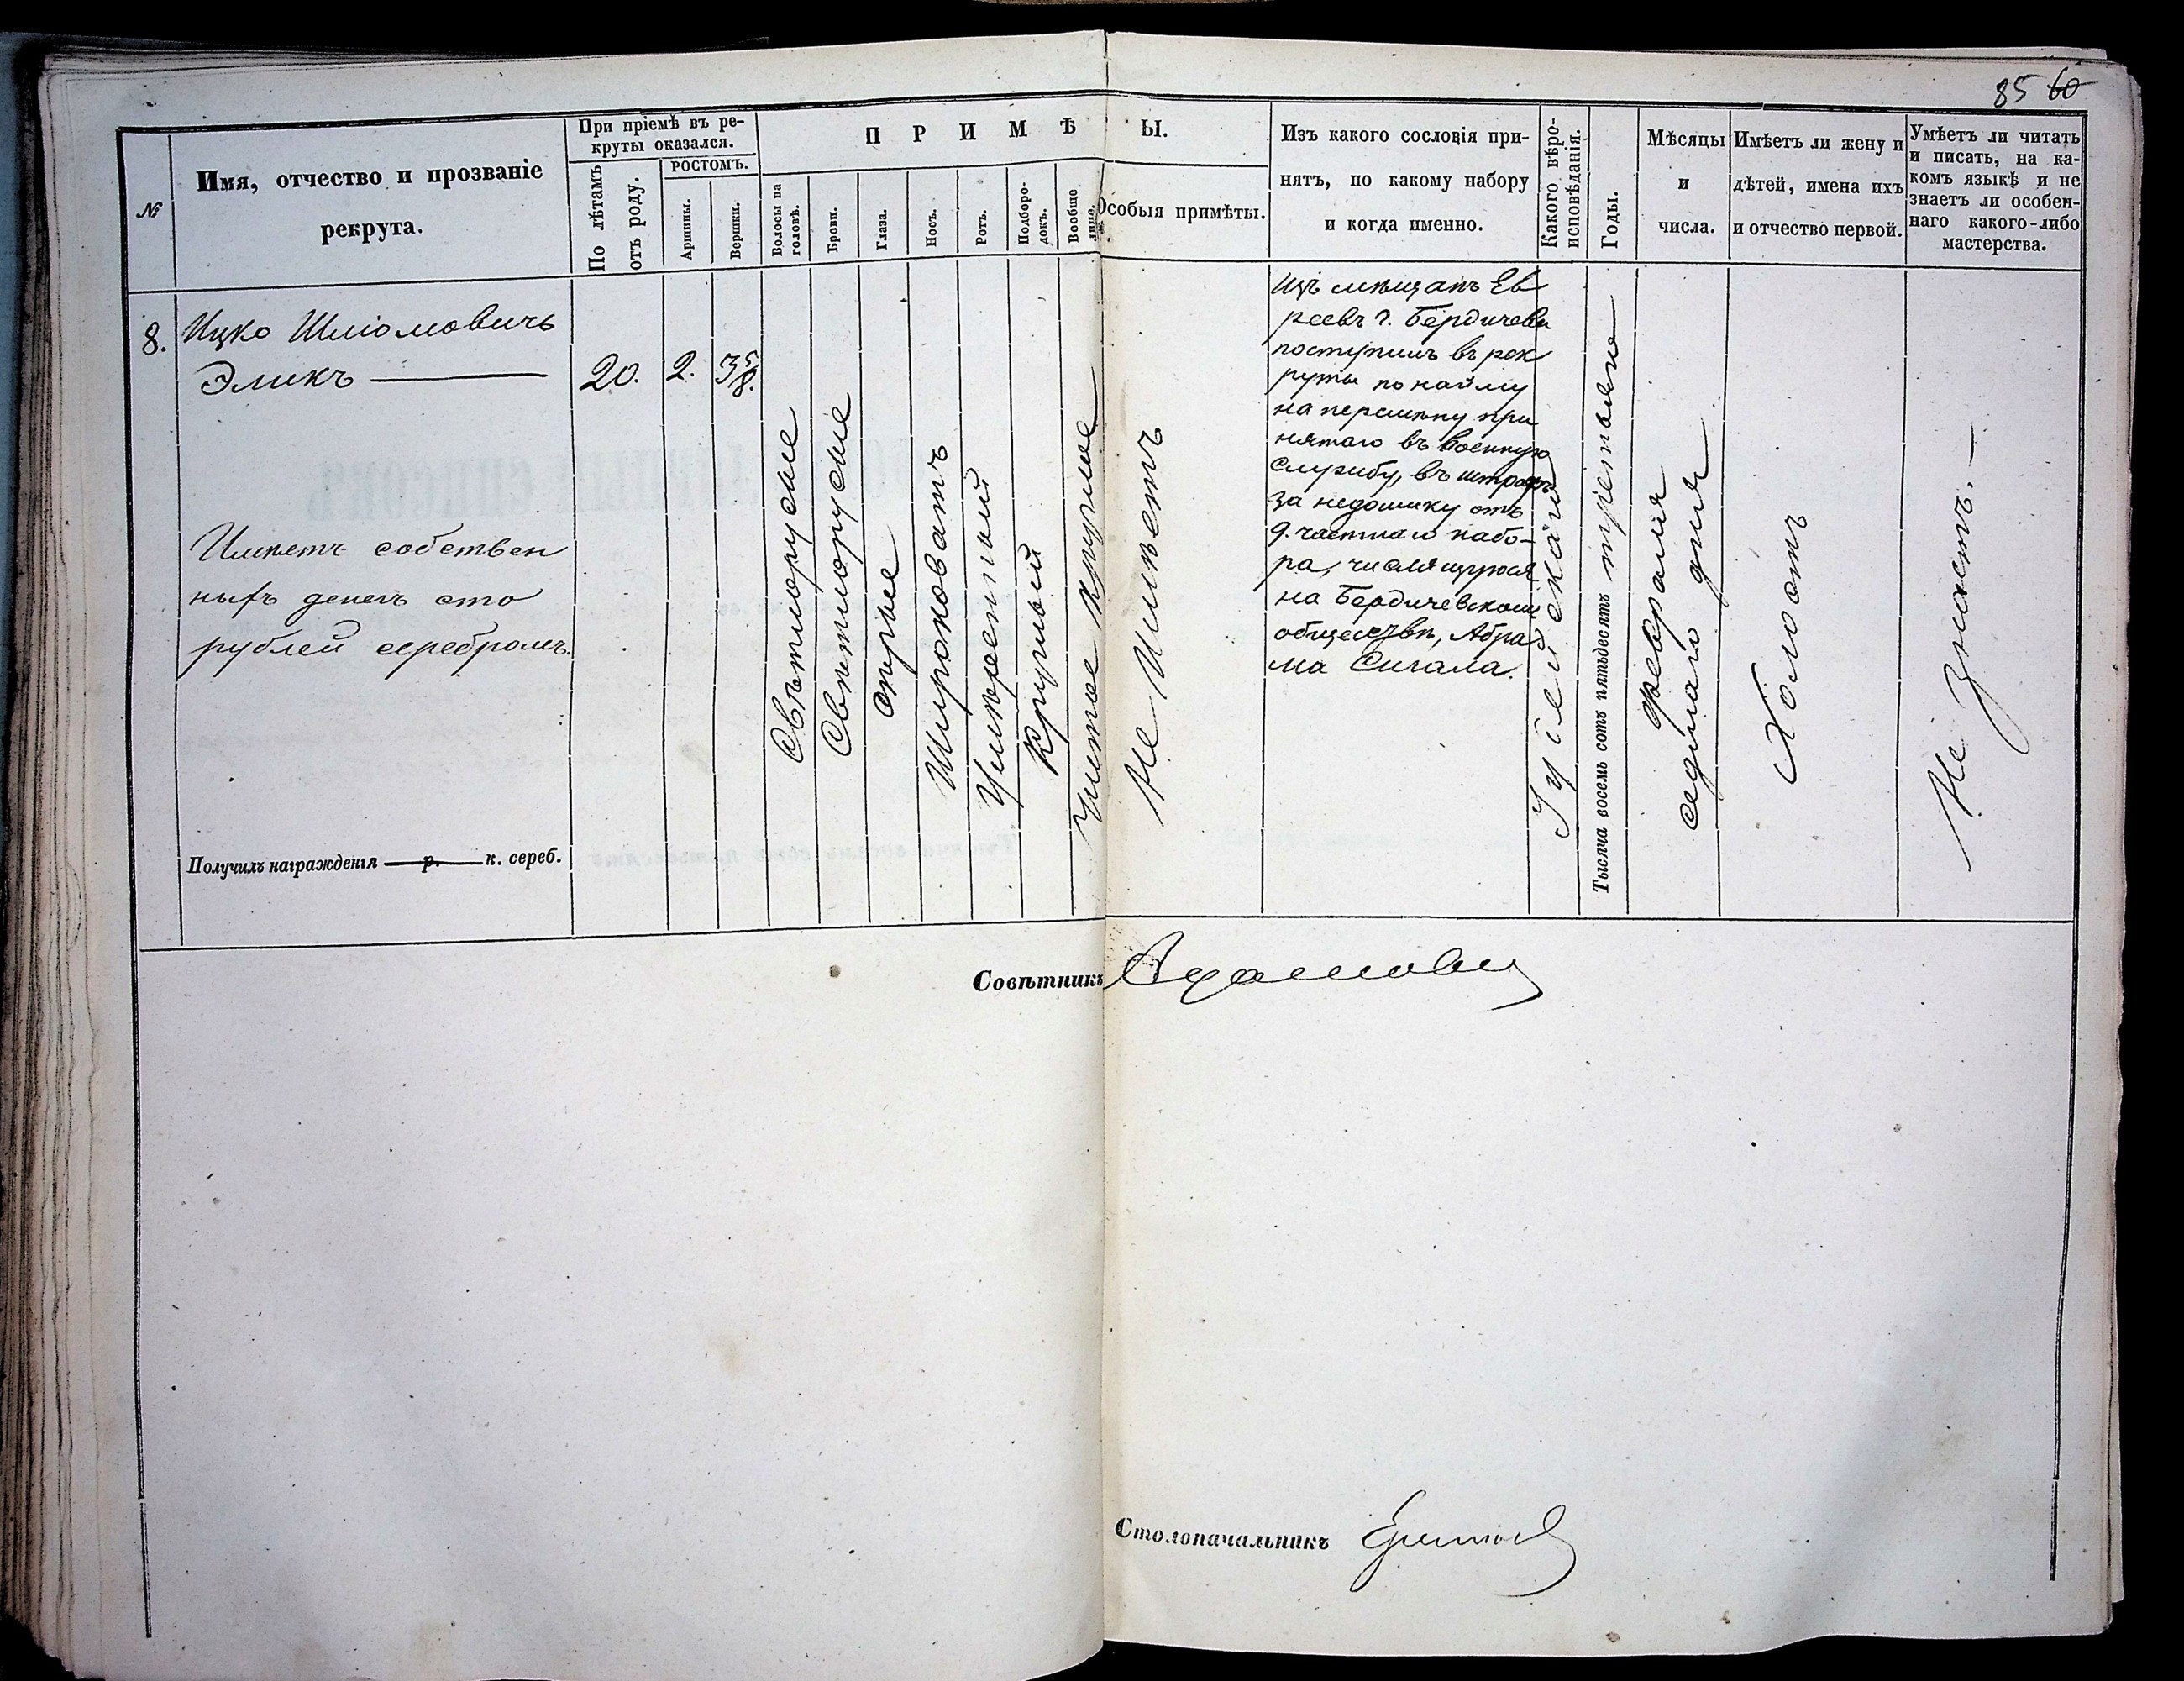 85 60
№
Имя, отчество и прозваніе
рекрута.
При пріемѣ въ ре-
круты оказался.
По лѣтамъ
отъ роду.
РОСТОМЪ.
Аршины.
Вершки.
ПРИМѢТЫ.
Волосы на
головѣ.
Брови.
Глаза.
Носъ.
Ротъ.
Подборо-
докъ.
Вообще
лице.
Особыя примѣты.
Изъ какого сословія при-
нятъ, по какому набору
и когда именно.
Какого вѣро-
исповѣданія.
Годы.
Мѣсяцы
и
числа.
Имѣетъ ли жену и
дѣтей, имена ихъ
и отчество первой.
Умѣетъ ли читать
и писать, на ка-
комъ языкѣ и не
знаетъ ли особен-
наго какого-либо
мастерства.
8.
Ицко Шліомовичъ
Эликъ —
Имѣетъ собствен
ныхъ денегъ сто
рублей серебромъ.
Получилъ награжденія — р. — к. сереб.
20.
2.
3 5/8.
Свѣтлорусые
Свѣтлорусые
Сѣрые
Широковатъ
Умѣренный
Круглый
Чистое круглое
Не Имѣетъ
Изъ мѣщанъ Ев
реевъ г. Бердичева
поступилъ въ рек
руты по найму
на перемѣну при
нятаго въ военную
службу, въ штрафъ
за недоимку отъ
9. частнаго набо-
ра, числящуюся
на Бердичевскомъ
обществѣ, Абра
ма Сигала.
Іудейскаго
Тысяча восемь сотъ пятьдесятъ третьяго
Февраля
седмаго дня
Холостъ
Не Знаетъ. —
Совѣтникъ
Столоначальникъ